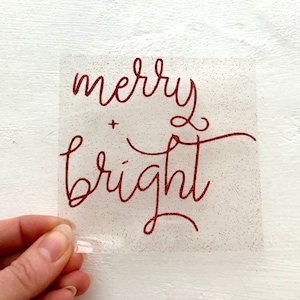 merry
+
bright